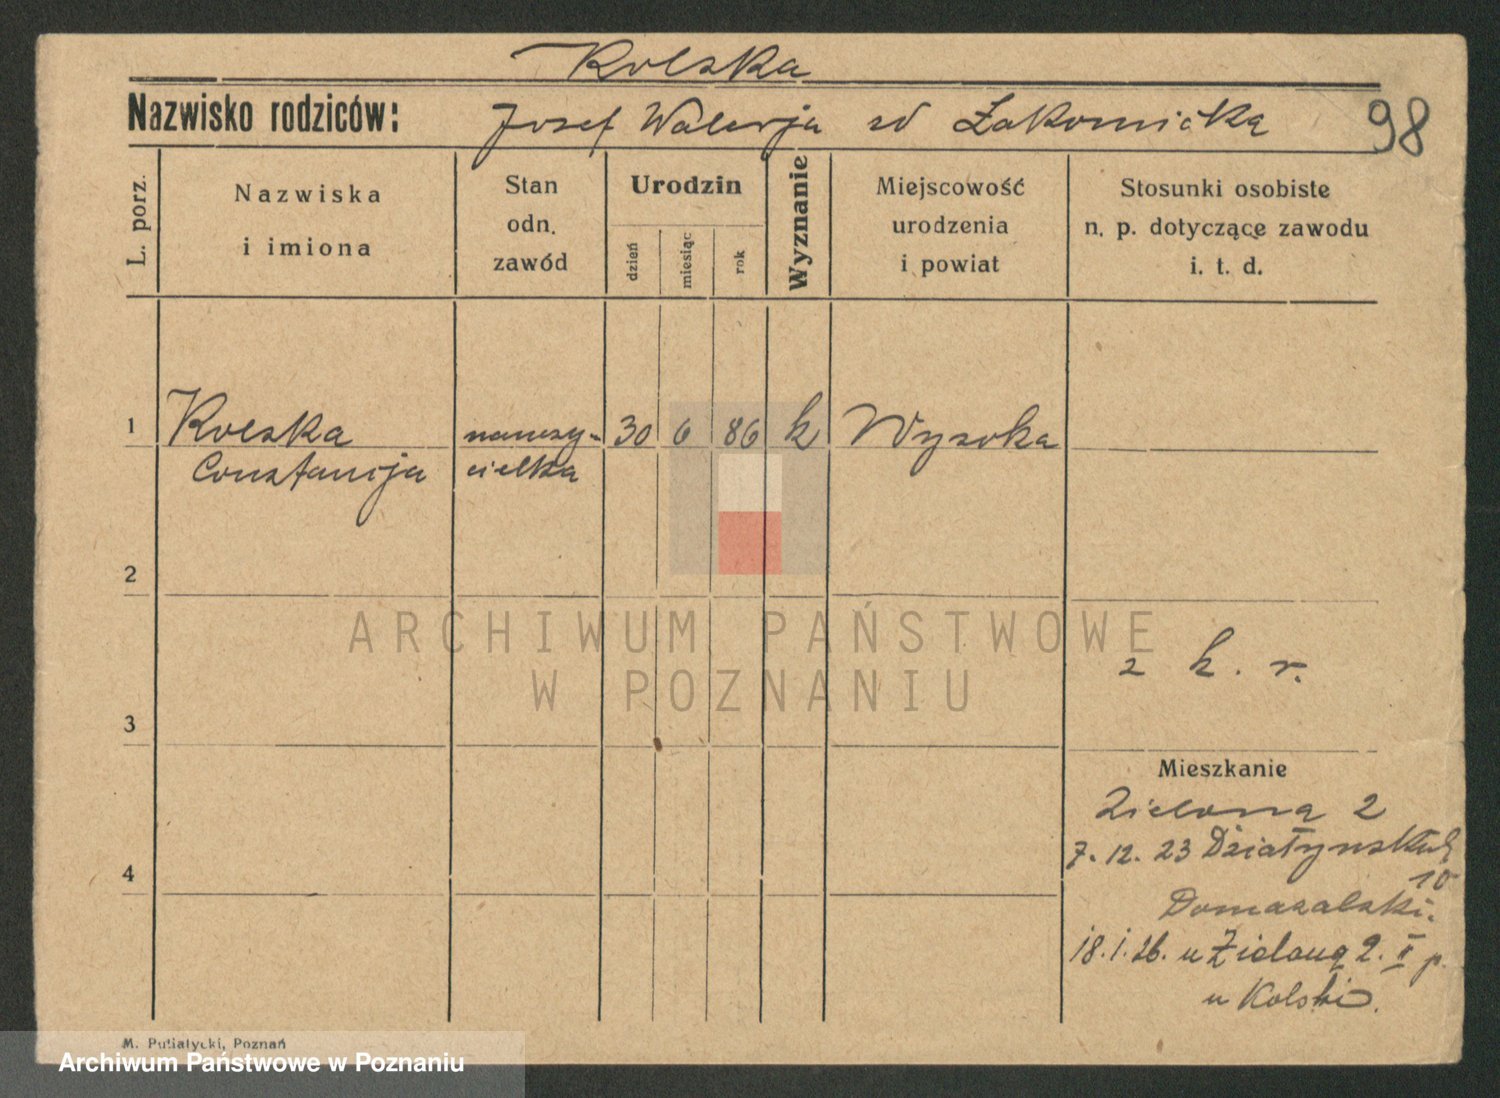 Kolska
Nazwisko rodziców: Josef Walerja zd Łakomicka
98
L. porz.
Nazwiska
i imiona
Stan
odn.
zawód
Urodzin
dzień
miesiąc
rok
Wyznanie
Miejscowość
urodzenia
i powiat
Stosunki osobiste
n. p. dotyczące zawodu
i. t. d.
1 Kolska nauczy- 30 6 86 k Wysoka
Constancja cielka
2
ARCHIWUM PAŃSTWOWE
W POZNANIU
z k. r.
3
Mieszkanie
Zielona 2
7. 12. 23 Działyńskich
10
Domagalski.
4
18. 1. 26. u Zielona 2. II p.
u Kolski.
M. Putiatycki, Poznań
Archiwum Państwowe w Poznaniu